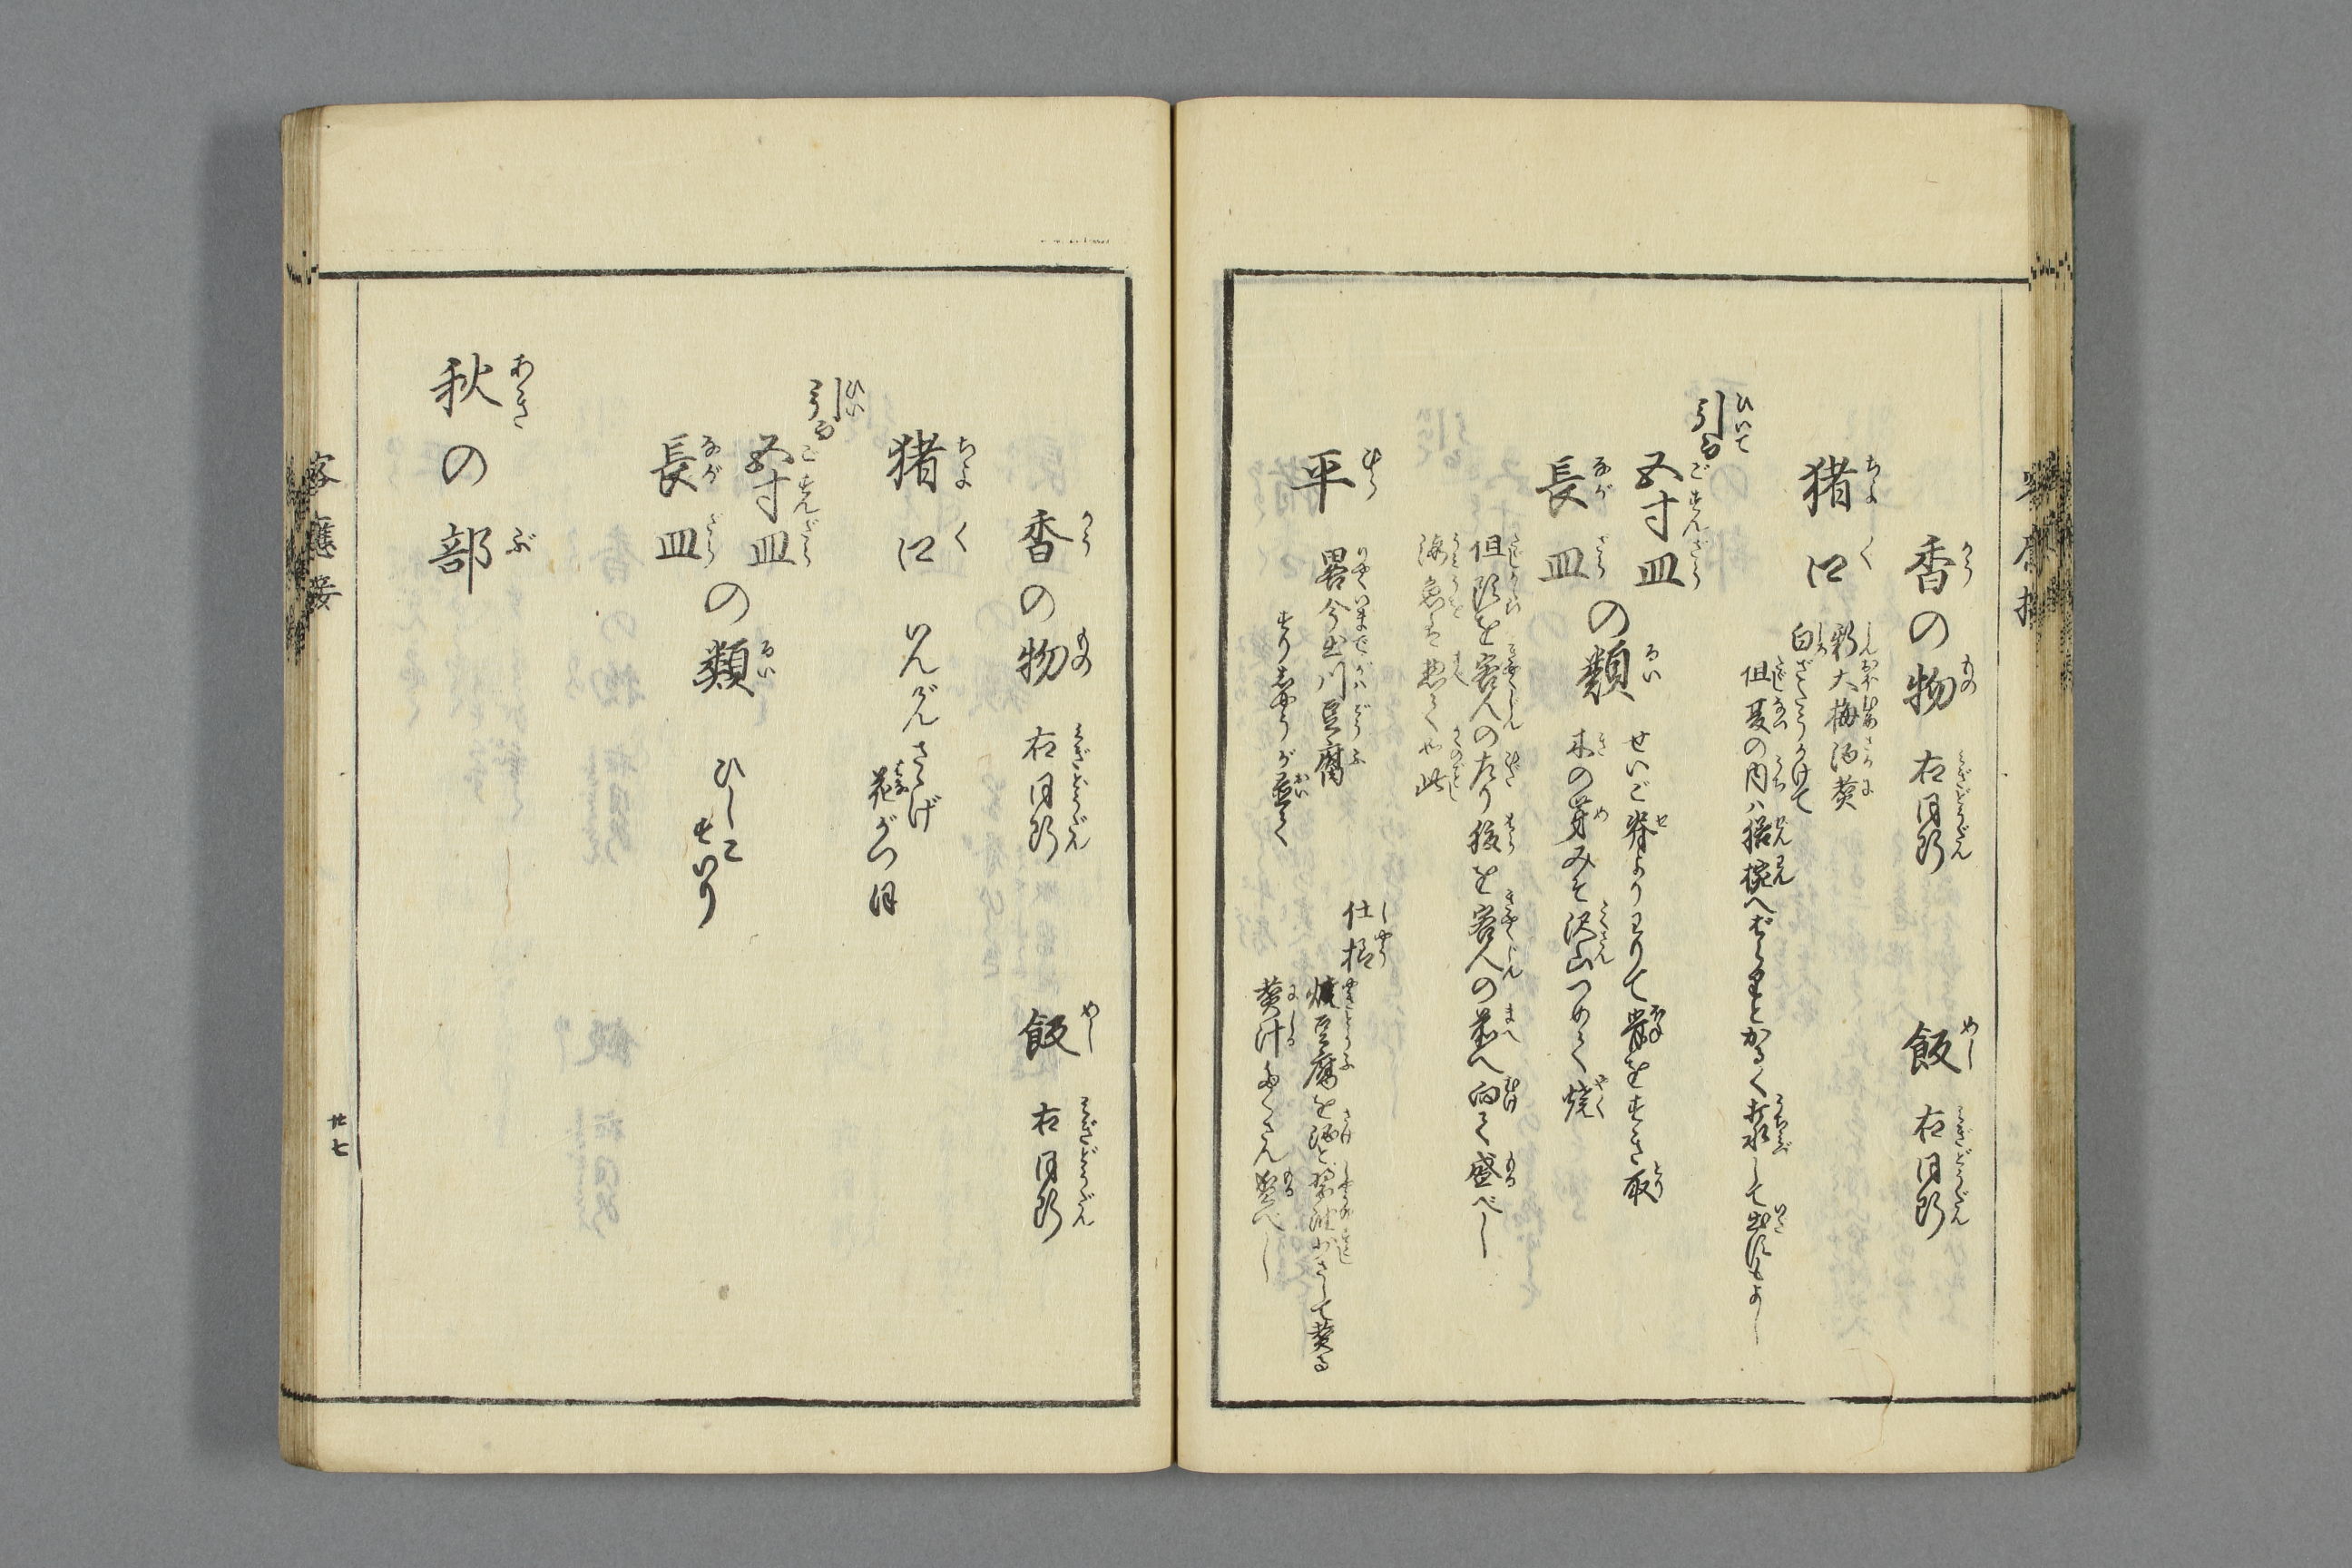 香の物 右同断 飯 右同断
猪口 新大梅酒煮
白ざたうかけて
但夏の内ハ猪椀へぱらりとかるく打氷して出すもよし
引て
五寸皿
長皿
の類
せいご脊よりわりて骨をすき取
木の芽みそ沢山つめて焼
但頭を客人の左り腹を客人の前へ向て盛べし
海魚は惣て如此
平 畧今出川豆腐
すりしやうが置て
仕様
焼豆腐を酒と醤油少しさして煮る
煮汁たくさん盛べし
香の物 右同断 飯 右同断
猪口 いんげんさゝげ
花がつほ
引て
五寸皿
長皿
の類
ひしこ
すいり
秋の部
客應接
廿七